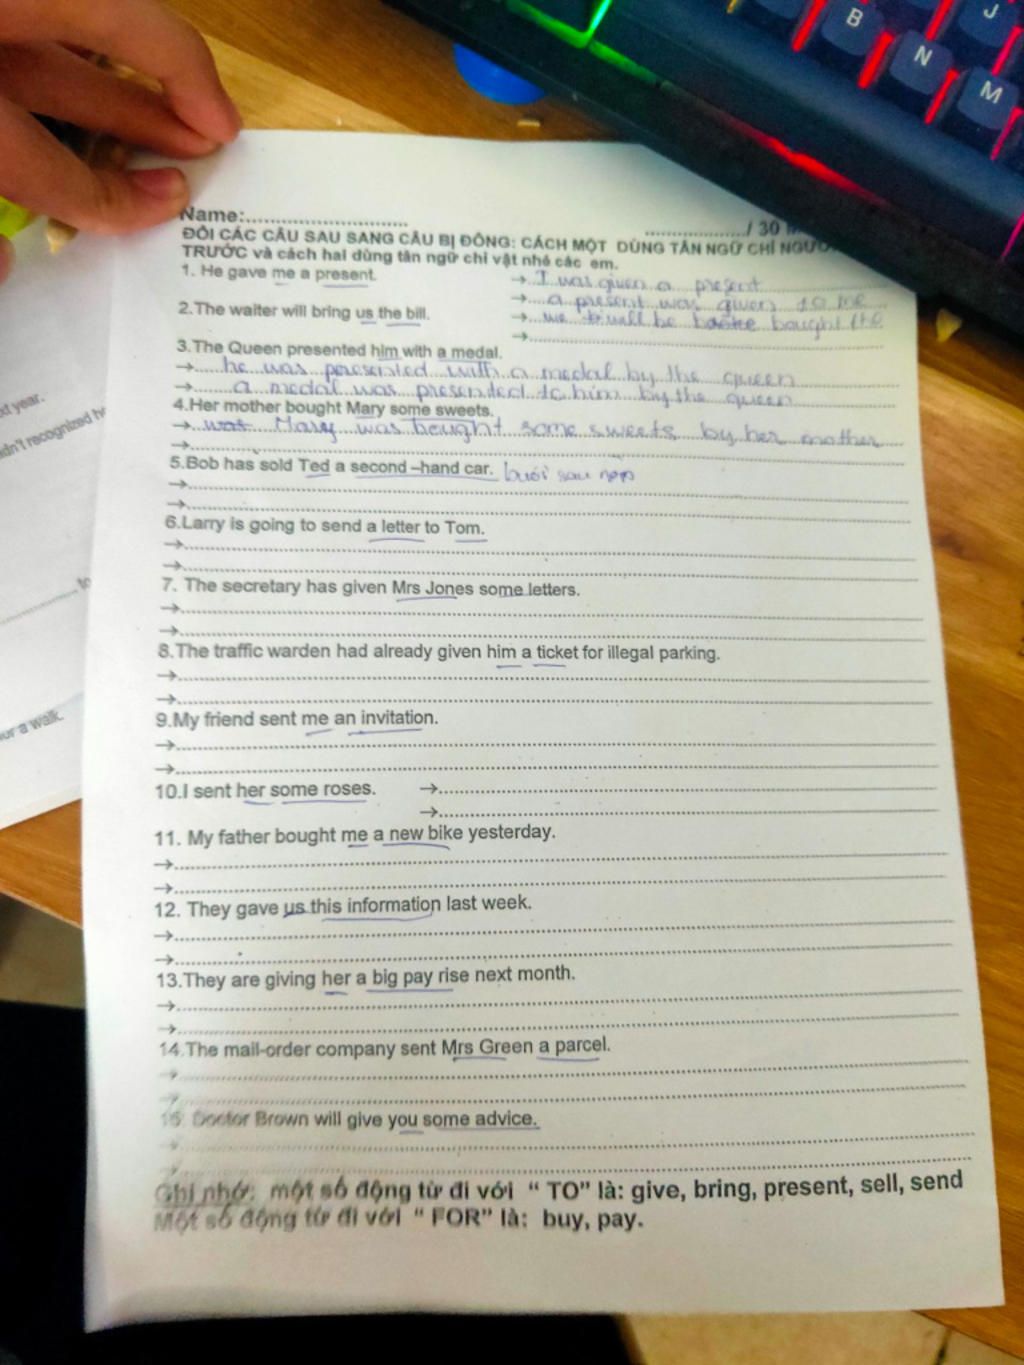 B
J
N
M
Name:..........................
................../ 30
ĐỔI CÁC CÂU SAU SANG CÂU BỊ ĐỘNG: CÁCH MỘT DÙNG TÂN NGỮ CHỈ
TRƯỚC và cách hai dùng tân ngữ chỉ vật nhé các em.
1. He gave me a present.
→ I was given a present
→ a present was given to me
2.The waiter will bring us the bill.
→ we will be bought the
→
3.The Queen presented him with a medal.
→ he was peresented with a medal by the queen
→ a medal was presented to him by the queen
4.Her mother bought Mary some sweets.
→ was Mary was bought some sweets by her mother
→
5.Bob has sold Ted a second –hand car. buổi sau nộp
→
→
6.Larry is going to send a letter to Tom.
→
→
7. The secretary has given Mrs Jones some letters.
→
→
8.The traffic warden had already given him a ticket for illegal parking.
→
→
9.My friend sent me an invitation.
→
→
10.I sent her some roses. →
→
11. My father bought me a new bike yesterday.
→
→
12. They gave us this information last week.
→
→
13.They are giving her a big pay rise next month.
→
→
14.The mail-order company sent Mrs Green a parcel.
→
→
15. Doctor Brown will give you some advice.
→
→
Ghi nhớ: một số động từ đi với “ TO” là: give, bring, present, sell, send
Một số động từ đi với “ FOR” là: buy, pay.
year.
recognized
to
a walk.